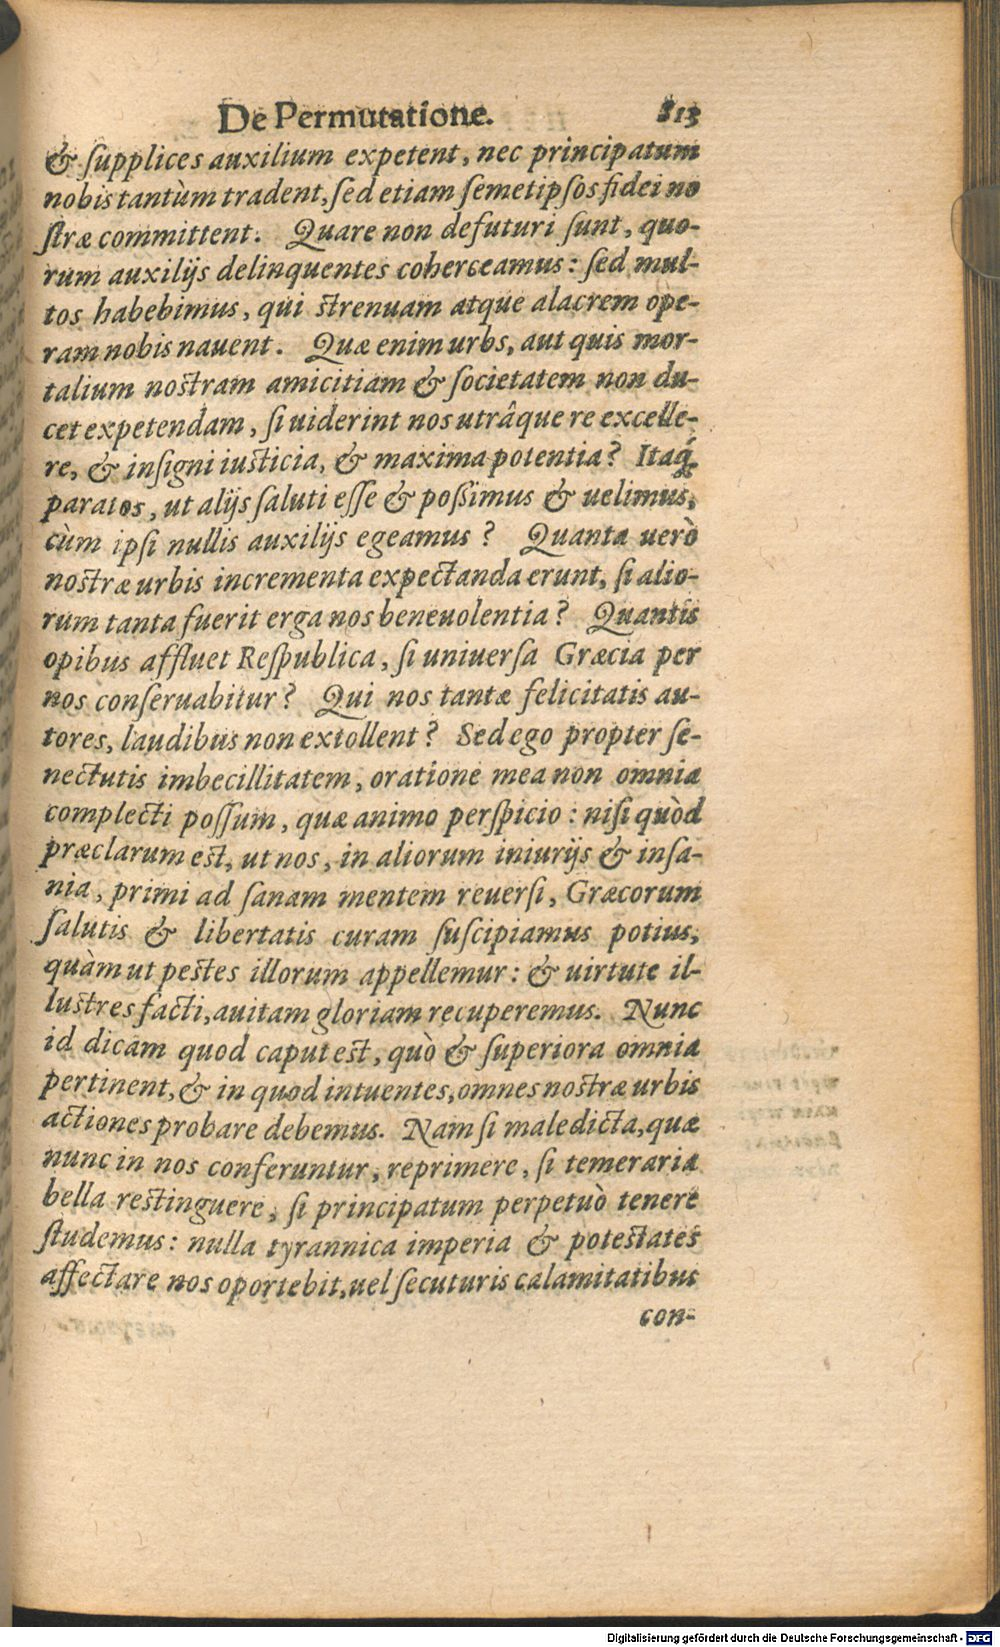 De Permutatione. 813
& ſupplices auxilium expetent, nec principatum
nobis tantùm tradent, ſed etiam ſemetipſos fidei no
ſtræ committent. Quare non defuturi ſunt, quo-
rum auxilijs delinquentes coherceamus: ſed mul-
tos habebimus, qui ſtrenuam atque alacrem ope-
ram nobis nauent. Quæ enim urbs, aut quis mor-
talium noſtram amicitiam & ſocietatem non du-
cet expetendam, ſi uiderint nos utrâque re excelle-
re, & inſigni iuſticia, & maxima potentia? Itaq́;
paratos, ut alijs ſaluti eſſe & poſsimus & uelimus,
cùm ipſi nullis auxilijs egeamus? Quanta uerò
noſtræ urbis incrementa expectanda erunt, ſi alio-
rum tanta fuerit erga nos beneuolentia? Quantis
opibus affluet Reſpublica, ſi uniuerſa Græcia per
nos conſeruabitur? Qui nos tantæ felicitatis au-
tores, laudibus non extollent? Sed ego propter ſe-
nectutis imbecillitatem, oratione mea non omnia
complecti poſſum, quæ animo perſpicio: niſi quòd
præclarum eſt, ut nos, in aliorum iniurijs & inſa-
nia, primi ad ſanam mentem reuerſi, Græcorum
ſalutis & libertatis curam ſuſcipiamus potius,
quàm ut peſtes illorum appellemur: & uirtute il-
luſtres facti, auitam gloriam recuperemus. Nunc
id dicam quod caput eſt, quò & ſuperiora omnia
pertinent, & in quod intuentes, omnes noſtræ urbis
actiones probare debemus. Nam ſi maledicta, quæ
nunc in nos conferuntur, reprimere, ſi temeraria
bella reſtinguere, ſi principatum perpetuò tenere
ſtudemus: nulla tyrannica imperia & poteſtates
affectare nos oportebit, uel ſecuturis calamitatibus
con-
Digitalisierung gefördert durch die Deutsche Forschungsgemeinschaft - DFG